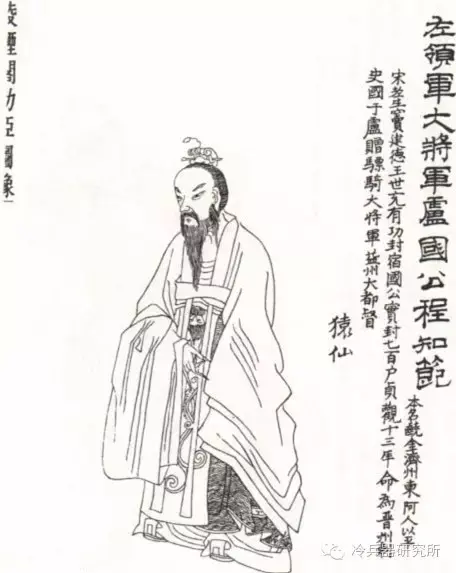 左領軍大將軍盧國公程知節
本名齩金濟州東阿人以平
宋金生竇建德王世充有功封宿國公實封七百户貞觀十三年命為晋州
史國于盧贈驃騎大將軍益州大都督
猿仙
凌煙閣功臣圖象
冷兵器研究所